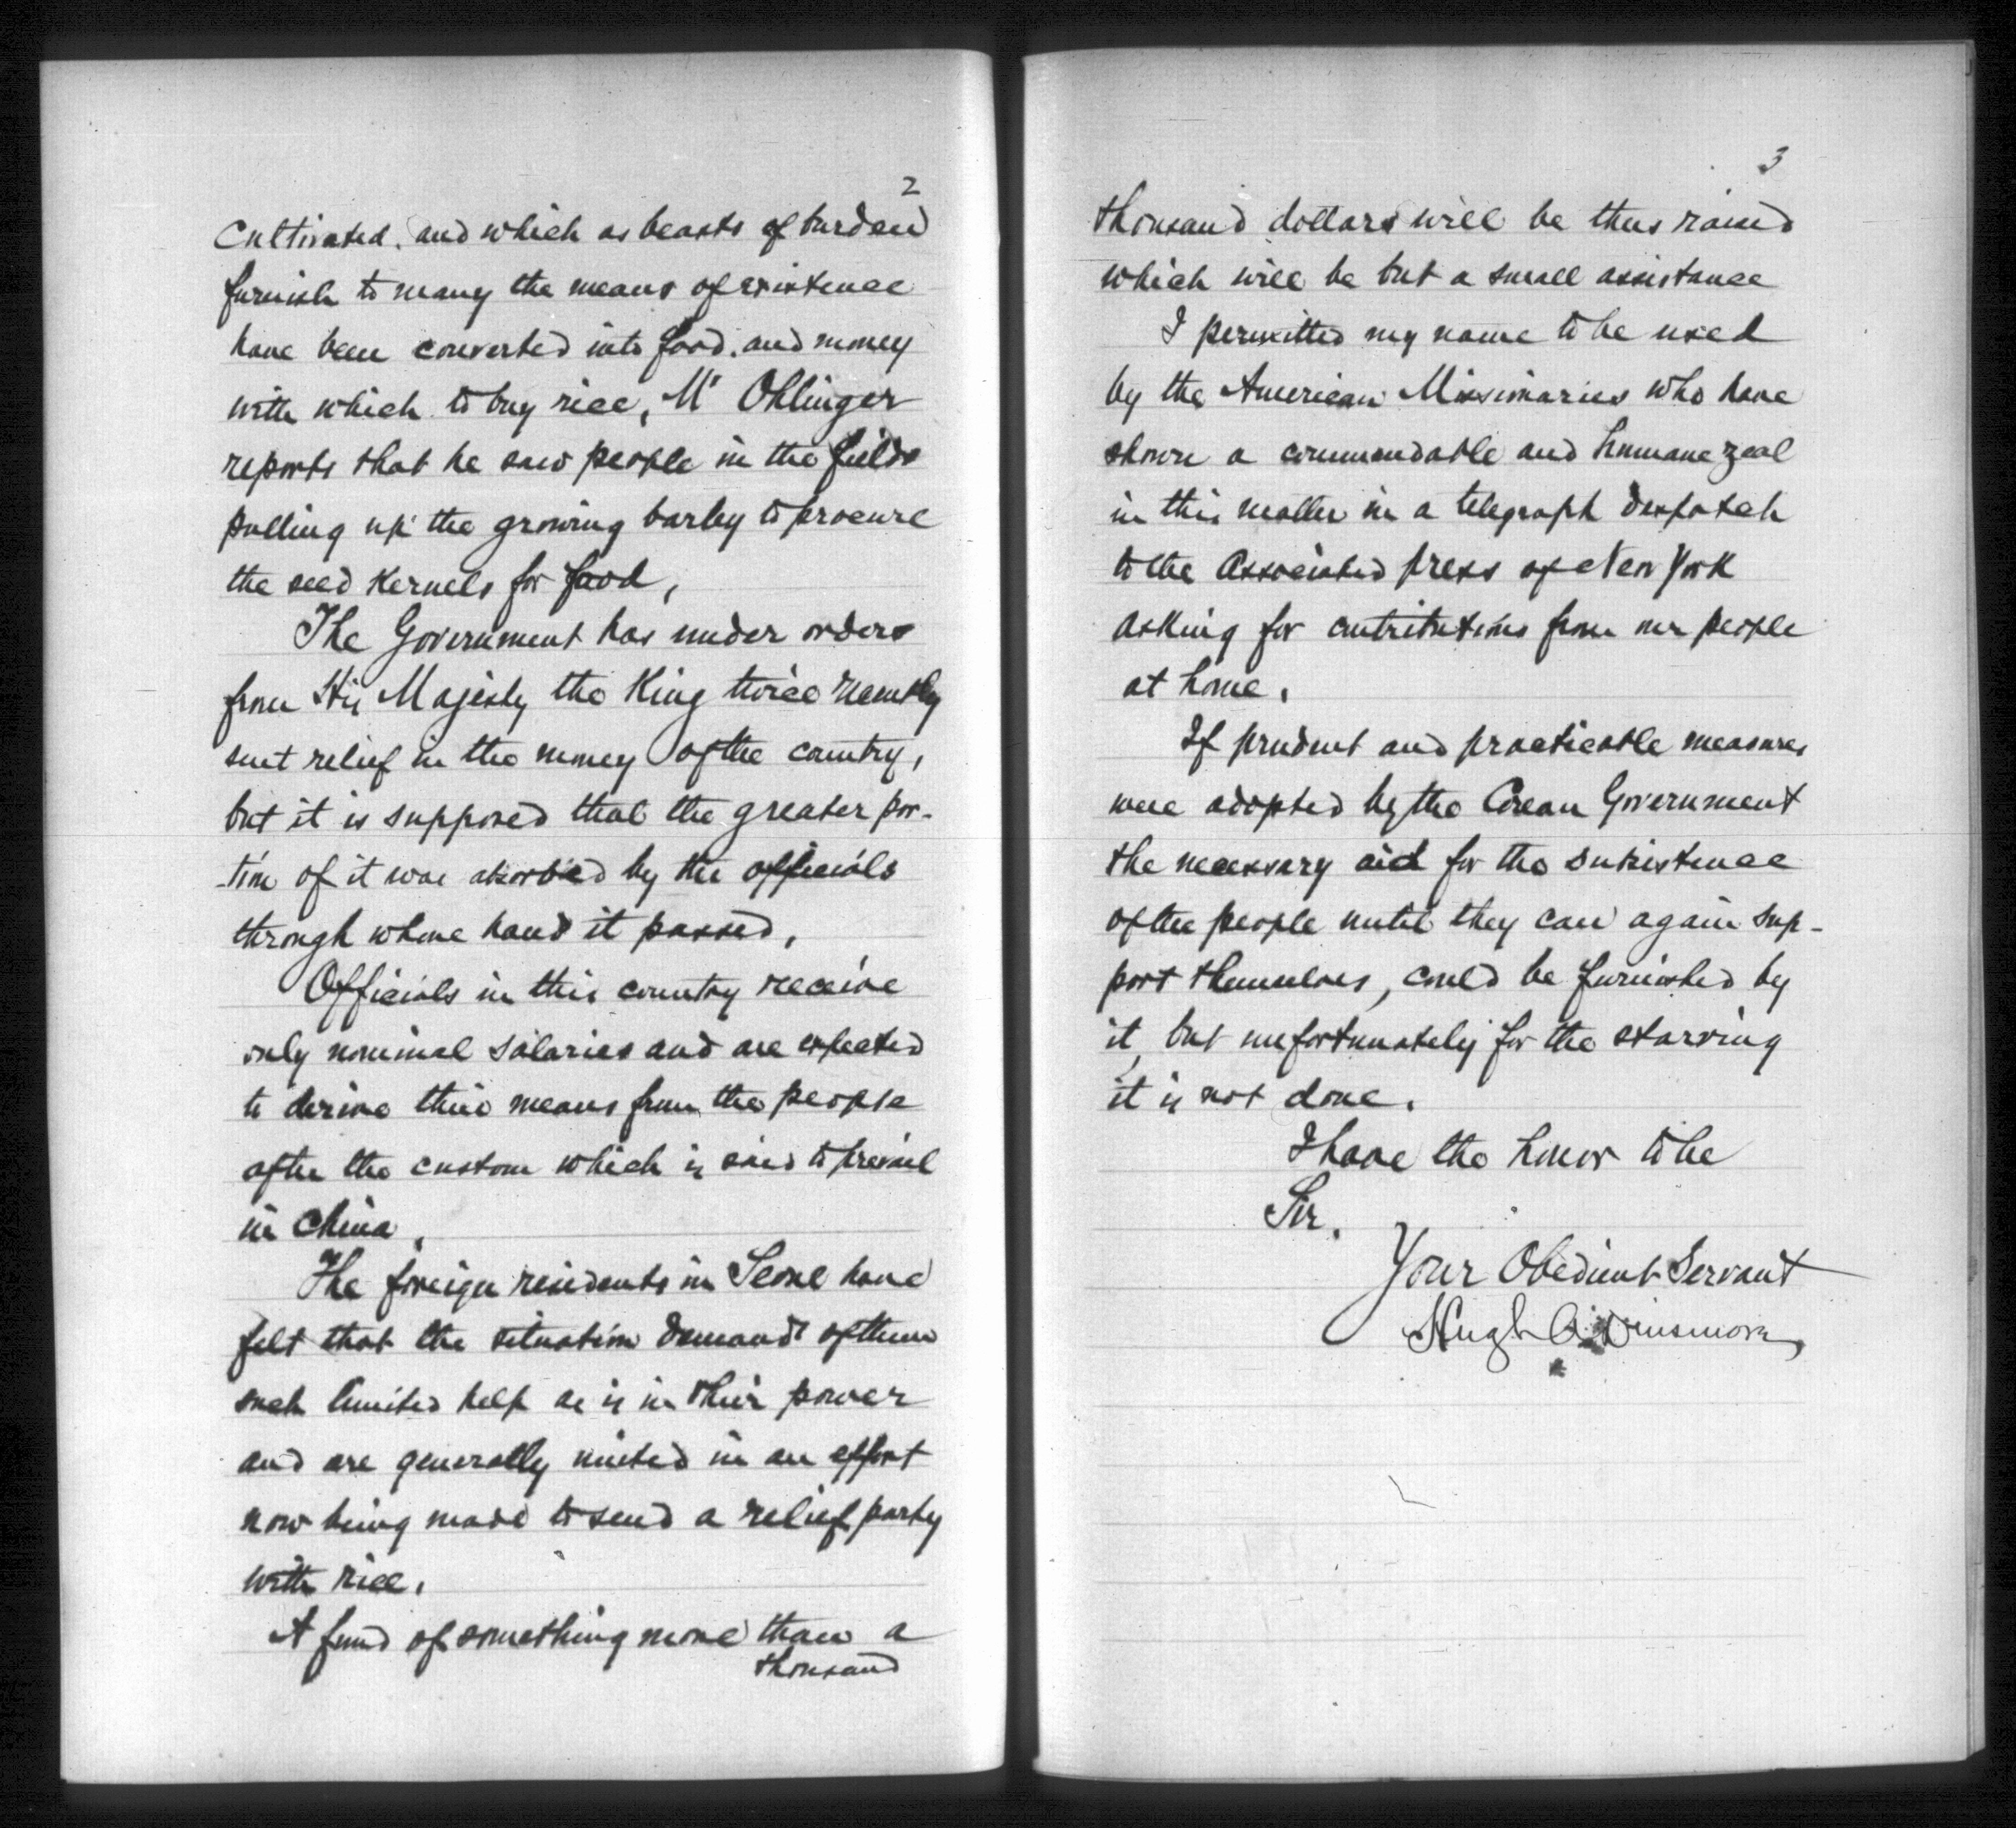 2
cultivated, and which as beasts of burden
furnish to many the means of existence
have been converted into food, and money
with which to buy rice, Mr Ohlinger
reports that he saw people in the fields
pulling up the growing barley to procure
the seed kernels for food,
The Government has under orders
from His Majesty the King twice recently
sent relief in the money of the country,
but it is supposed that the greater por-
-tion of it was absorbed by the officials
through whose hand it passed,
Officials in this country receive
only nominal salaries and are expected
to derive their means from the people
after the custom which is said to prevail
in China,
The foreign residents in Seoul have
felt that the situation demand of them
such limited help as is in their power
and are generally united in an effort
now being made to send a relief party
with rice,
A fund of something more than a
thousand
3
thousand dollars will be thus raised
which will be but a small assistance
I permitted my name to be used
by the American Missionaries who have
shown a commendable and humane zeal
in this matter in a telegraph despatch
to the Associated press of New York
asking for contributions from our people
at home,
If prudent and practicable measures
were adopted by the Corean Government
the necessary aid for the subsistence
of the people until they can again sup-
port themselves, could be furnished by
it, but unfortunately for the starving
it is not done.
I have the honor to be
Sir,
Your Obedient Servant
Hugh A. Dinsmore,